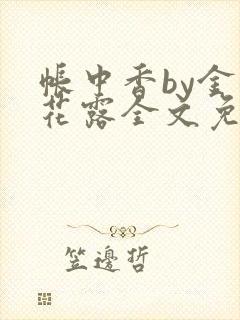 帐中香by金
花露全文免
笠邊哲